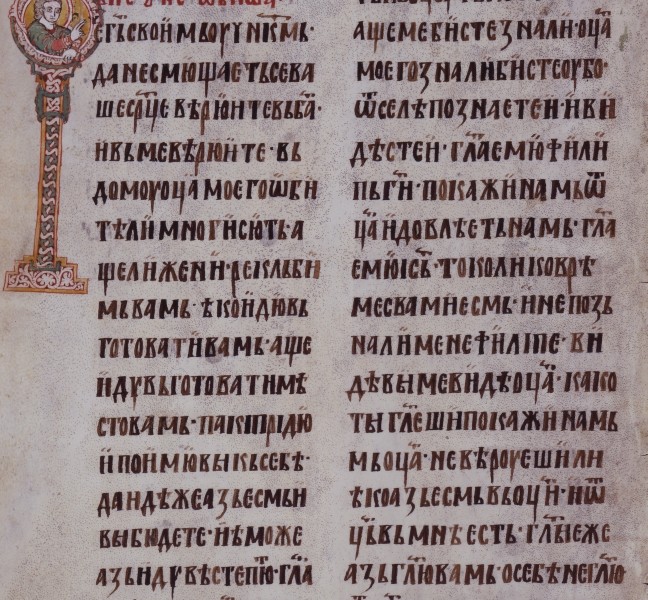 егъскоимь оучн҃кмь·
да не смющаеть се ва
ше ср҃це вѣрюите вь б҃а·
и вь ме вѣрюите· вь
домоу оц҃а моего ѡби
тѣли многи сють· а
ще ли же ни· реклъ би
мь вамь· ѣко идю вь
готовати вамь· аще
идꙋ вьготовати мѣ
сто вамь· паки придю
и поимю вы кь себѣ·
да идѣже азь есмь и
вы бюдете· и ѣможе
азь идꙋ вѣсте пю҃т· гл҃а
аще ме бисте знали· оц҃а
моего знали бисте оубо·
ѿселѣ познаете и· и ви
дѣсте и· гл҃а емю фили
пь г҃и· покажи намь ѿ
ца и довлѣеть намь· гл҃а
емю ис҃ъ· толико врѣ
ме с вами есмь· и не позь
нали мене филипе· ви
дѣвы ме видѣ оц҃а· како
ты гл҃еши покажи намь
мь оц҃а· не вѣроуеши ли
ѣко азь есмь вь оц҃и· и ѿ
цъ вь мнѣ есть· гл҃ы еже
азь гл҃ю вамь о себѣ не гл҃ю